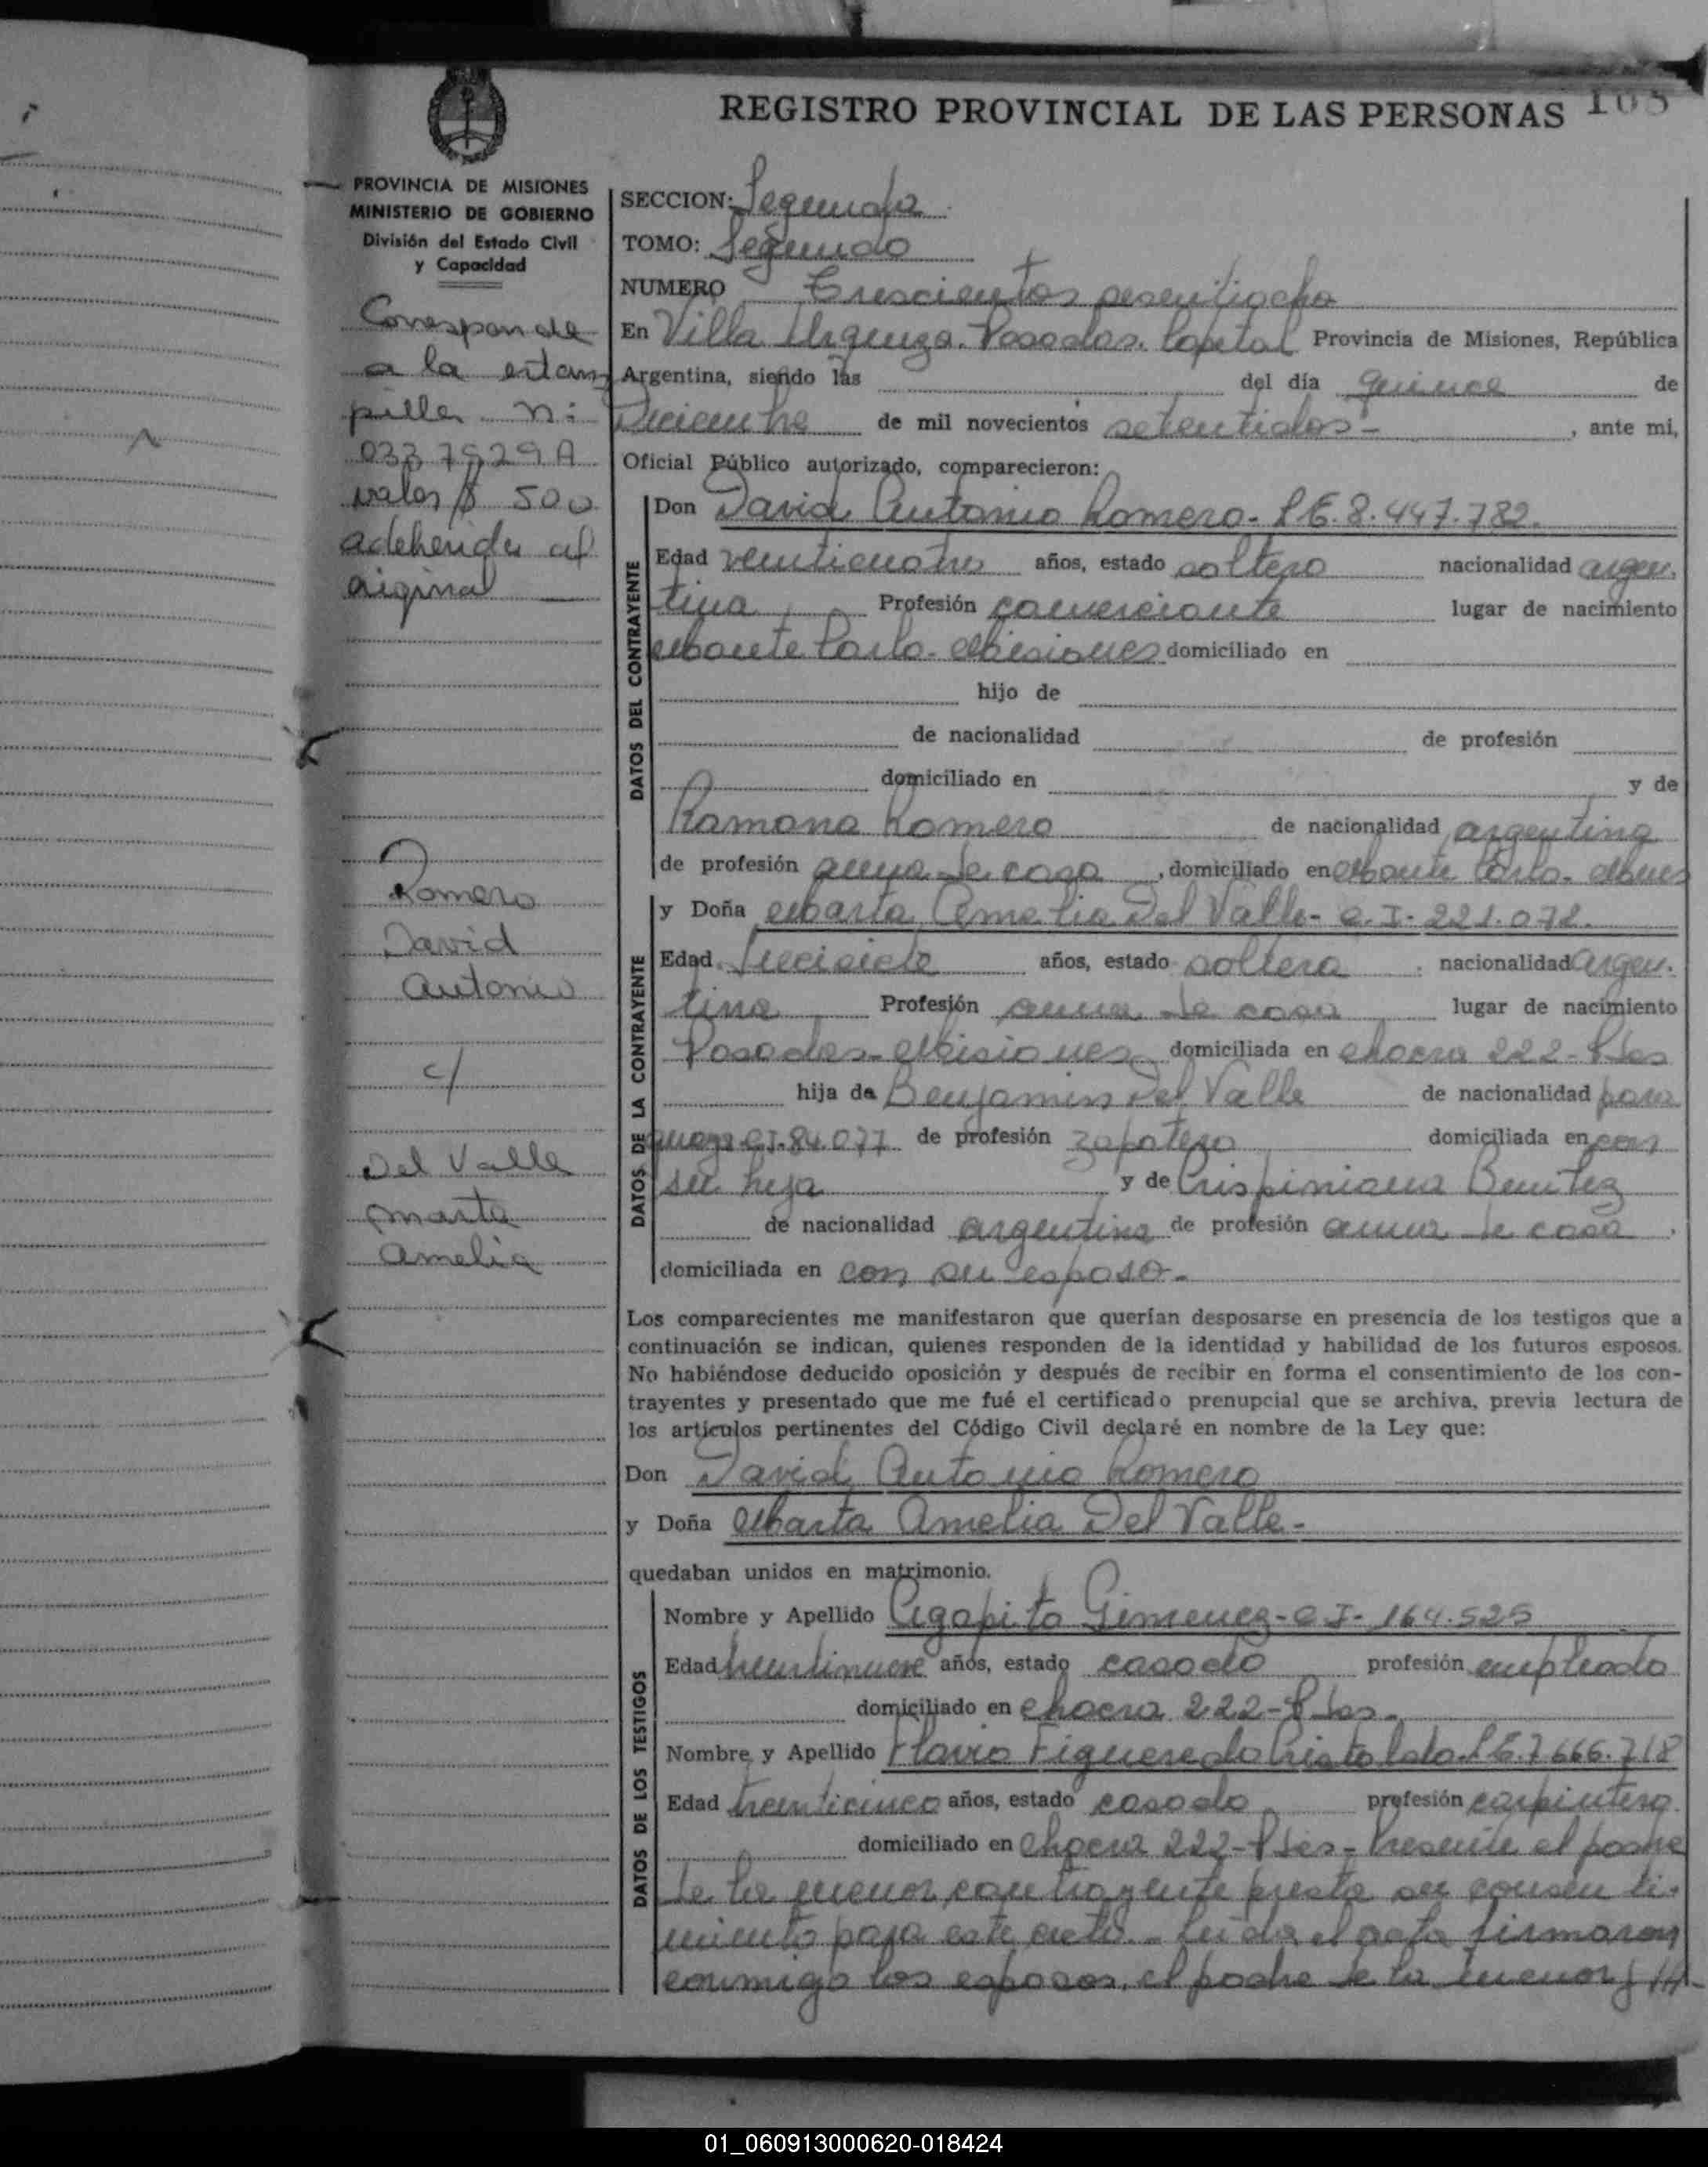 REGISTRO PROVINCIAL DE LAS PERSONAS 168
PROVINCIA DE MISIONES
MINISTERIO DE GOBIERNO
División del Estado Civil
y Capacidad
Corresponde
a la estam
pilla n:
0337529A
valor $ 500
adherida al
original
Romero
David
Antonio
c/
Del Valle
Marta
Amelia
SECCION: Segunda
TOMO: Segundo
NUMERO Trescientos sesentiocho
En Villa Urquiza. Posadas. Capital Provincia de Misiones, República
Argentina, siendo las del día quince de
Diciembre de mil novecientos setentidos- , ante mi,
Oficial Público autorizado, comparecieron:
DATOS DEL CONTRAYENTE
Don David Antonio Romero- L.E. 8.447.782.
Edad veinticuatro años, estado soltero nacionalidad argen.
tina Profesión comerciante lugar de nacimiento
Monte Carlo- Misiones domiciliado en
hijo de
de nacionalidad de profesión
domiciliado en y de
Ramona Romero de nacionalidad argentina
de profesión ama de casa , domiciliado en Monte Carlo-
DATOS DE LA CONTRAYENTE
y Doña Marta Amelia Del Valle- C.I- 221.072.
Edad Diecisiete años, estado soltera . nacionalidad argen.
tina Profesión ama de casa lugar de nacimiento
Posadas- Misiones domiciliada en chacra 222- Pdas
hija de Benjamin Del Valle de nacionalidad para
guaya C.I. 84.077 de profesión zapatero domiciliada en con
su hija y de Crispiniana Benitez
de nacionalidad argentina de profesión ama de casa .
domiciliada en con su esposo-
Los comparecientes me manifestaron que querían desposarse en presencia de los testigos que a
continuación se indican, quienes responden de la identidad y habilidad de los futuros esposos.
No habiéndose deducido oposición y después de recibir en forma el consentimiento de los con-
trayentes y presentado que me fué el certificado prenupcial que se archiva, previa lectura de
los artículos pertinentes del Código Civil declaré en nombre de la Ley que:
Don David Antonio Romero
y Doña Marta Amelia Del Valle-
quedaban unidos en matrimonio.
DATOS DE LOS TESTIGOS
Nombre y Apellido Agapito Gimenez- C.I- 164.525
Edad años, estado casado profesión empleado
domiciliado en chacra 222- Pdas-
Nombre y Apellido Flavio Figueredo L.E. 7.666.718
Edad treinticinco años, estado casado profesión carpintero.
domiciliado en Chacra 222- Pdas- Presente el padre
de la menor contrayente presta su consenti-
miento para este acto.- Leida el acta firmaron
conmigo los esposos, el padre de la menor y
01_060913000620-018424